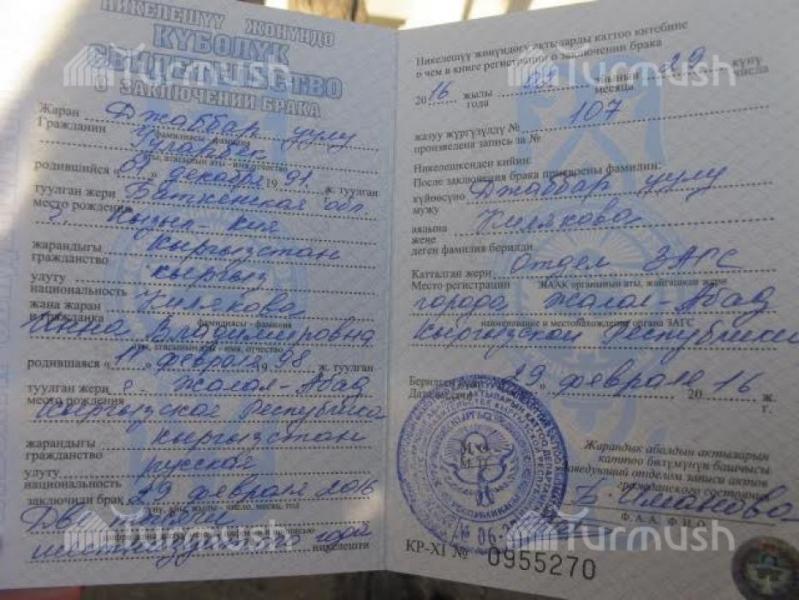 НИКЕЛЕШҮҮ ЖӨНҮНДӨ
КҮБӨЛҮК
СВИДЕТЕЛЬСТВО
О ЗАКЛЮЧЕНИИ БРАКА
Жаран Джаббар уулу
Гражданин
фамилиясы - фамилия
аты, атасынын аты - имя, отчество
родившийся « 01 » декабря 19 91 ж. туулган
туулган жери Баткенская обл.
место рождения
г. Кызыл-Кия
жарандыгы Кыргызстан
гражданство
улуту кыргыз
национальность
жана жаран Хилякова
и гражданка
фамилиясы - фамилия
Инна Владимировна
аты, атасынын аты - имя, отчество
родившаяся « февраля 19 98 ж. туулган
туулган жери г. Жалал-Абад
место рождения
Кыргызской Республики
жарандыгы Кыргызстан
гражданство
улуту русская
национальность
заключили брак 29 февраля 2016
число, месяц, год
Две тысячи
шестнадцатого года
никелешти
Никелешүү жөнүндөгү актыларды каттоо китебине
о чем в книге регистрации о заключении брака
2016 жылы 02 29 күнү
года месяца числа
107
жазуу жүргүзүлдү №
произведена запись за №
Никелешкенден кийин:
После заключения брака присвоены фамилии:
күйөөсүнө Джаббар уулу
мужу
аялына Хилякова
жене
деген фамилия берилди
Катталган жери Отдел ЗАГС
Место регистрации ЖААК органынын аты, жайгашкан жери
города Жалал-Абад
наименование и местонахождение органа ЗАГС
Кыргызской Республики
Берилген 29 » февраля 20 16 ж.
Дата г.
Жарандык абалдын актыларын
каттоо бөлүмүнүн башчысы
Заведующий отделом записи актов
гражданского состояния
Б. Иманова
Ф.А.А. Ф.И.О.
КР-XI № 0955270
Turmush
Turmush
Turmush
Turmush
Turmush
Turmush